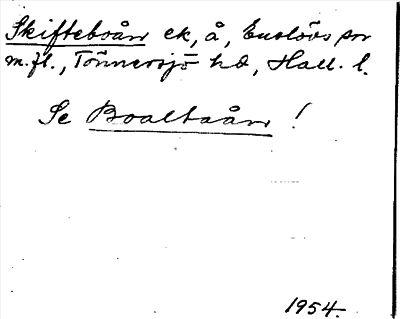 Skifteboån ek, å, Enslövs sn
m. fl., Tönnersjö hd, Hall. l.
Se Boaltaån !
1954.